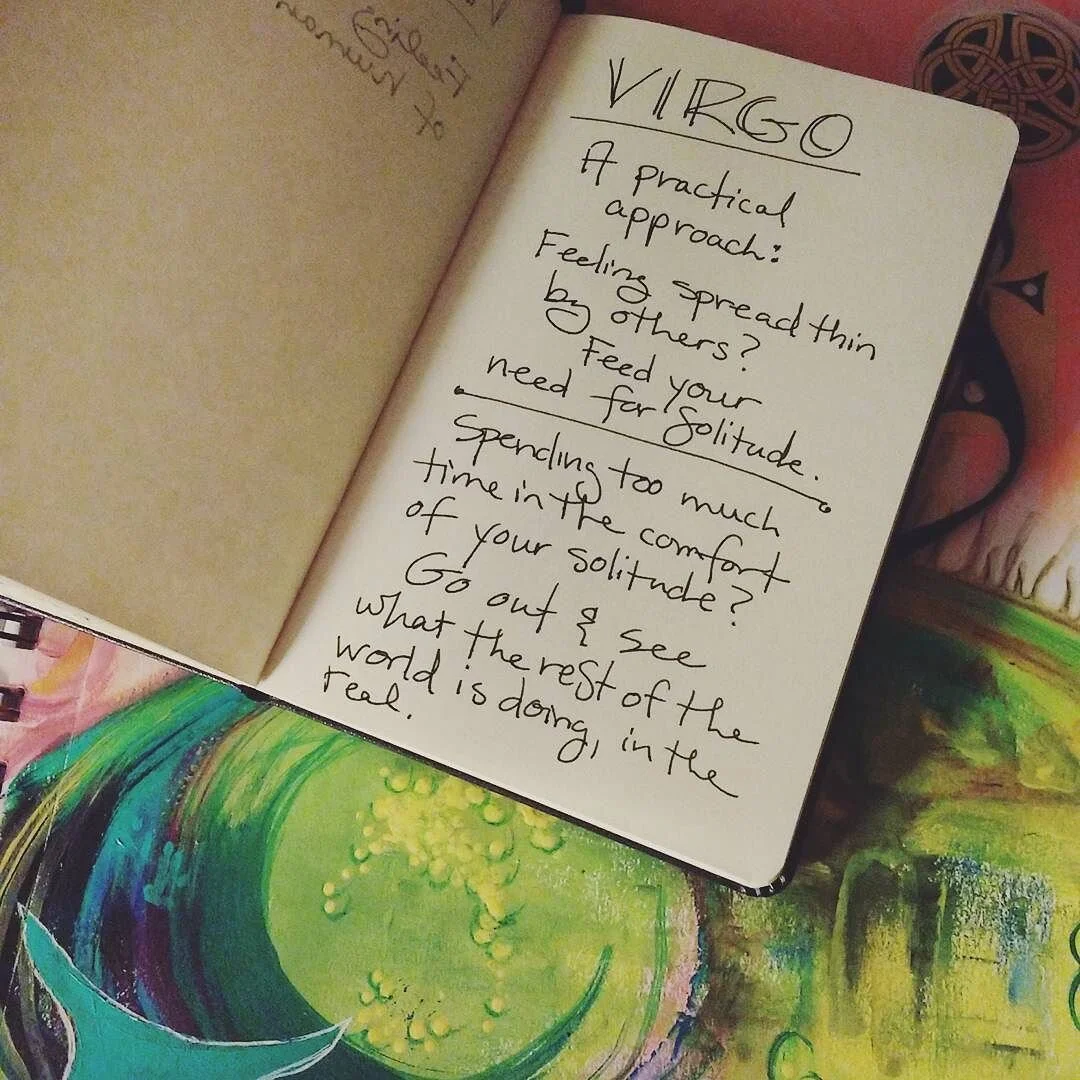 VIRGO
A practical
approach:
Feeling spread thin
by others?
Feed your
need for Solitude.
Spending too much
time in the comfort
of your solitude?
Go out & see
what the rest of the
world is doing, in the
real.
Feeling
of human